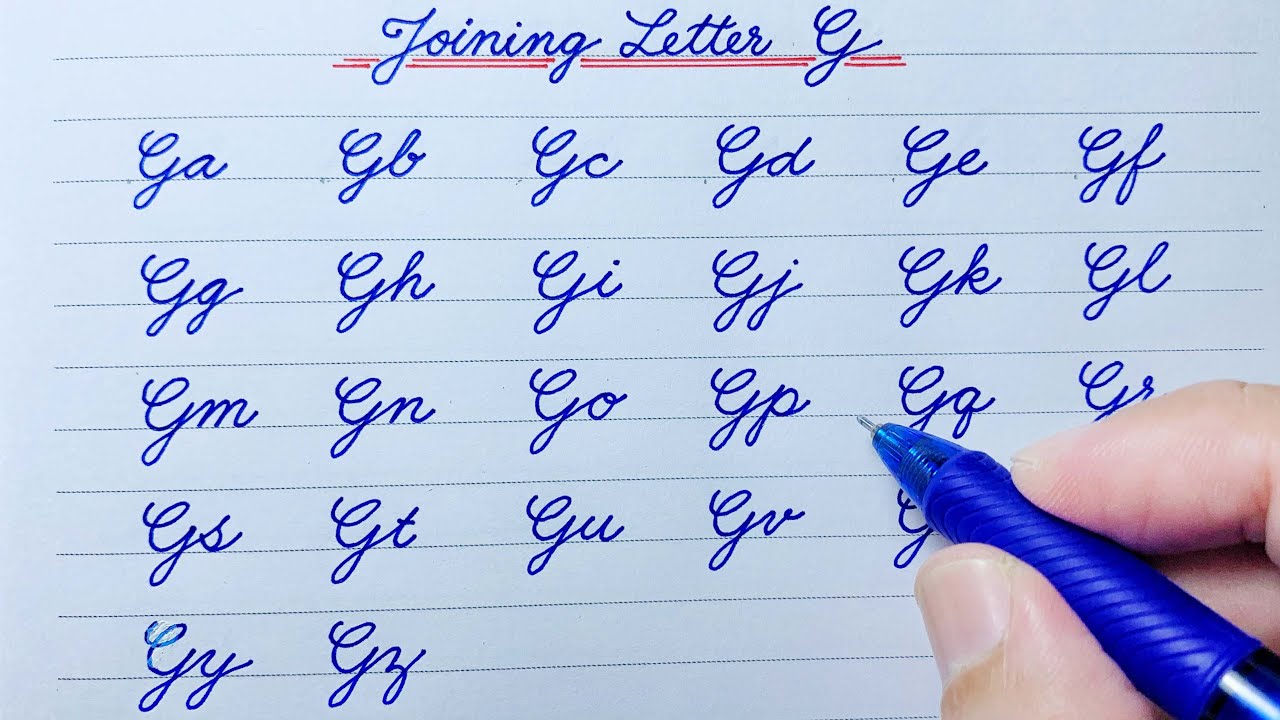 Joining Letter G
Ga Gb Gc Gd Ge Gf
Gg Gh Gi Gj Gk Gl
Gm Gn Go Gp Gq Gr
Gs Gt Gu Gv
Gy Gz